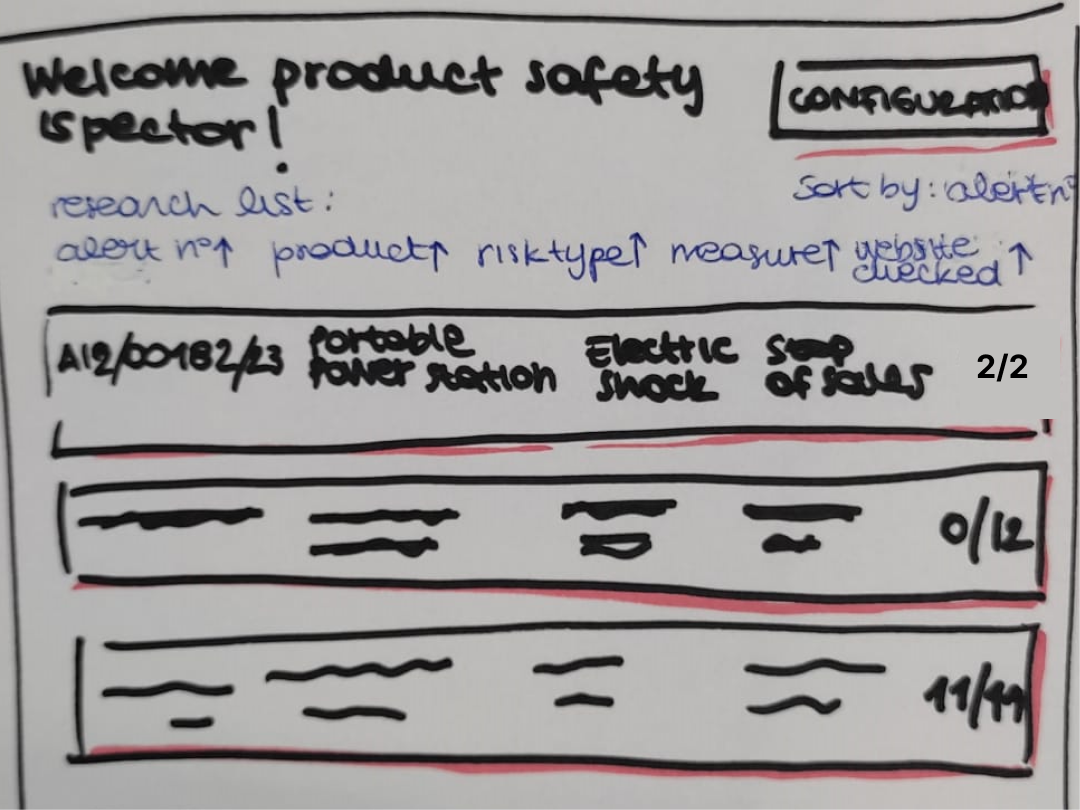 Welcome product safety
ispector!
CONFIGURATION
research list:
sort by: alert n°
alert n°↑ product↑ risk type↑ measure↑ website checked ↑
A12/00182/23 Portable Power station Electric shock Stop of sales 2/2
0/12
11/11